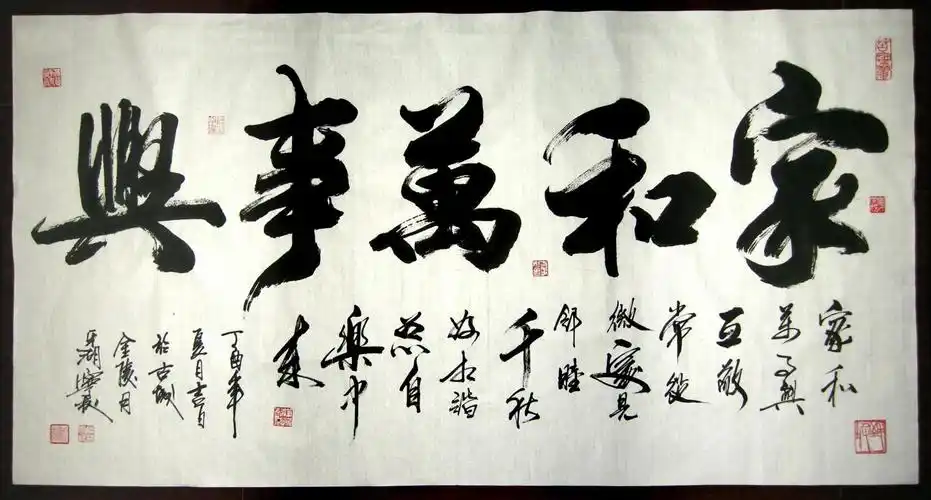 家和萬事興
家和
萬事興
互敬
常從
微處見
邻睦
千秋
好和諧
总自
樂中
來
丁酉年
夏月吉日
於古城
金陵月
牙湖